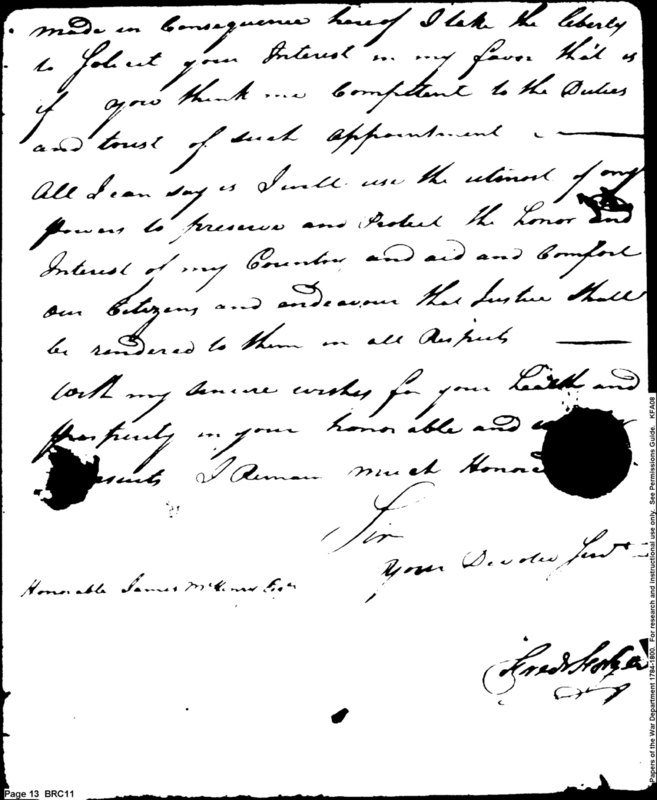 made in Consequence hereof I take the liberty
to Solicit your Interest in my favor that is
if you think me Competent to the Duties
and trust of such appointment
All I can say is I will use the utmost of my
powers to preserve and Protect the honor and
Interest of my Country and aid and Comfort
our Citizens and endeavour that Justice Shall
be rendered to them in all Respects
With my sincere wishes for your health and
prosperity in your honorable and
I Remain much Honored
Sir
Your Devoted Servt
Honorable James McHenry Esqr
Page 13 BRC11
Papers of the War Department 1784-1800. For research and instructional use only. See Permissions Guide. KFA08